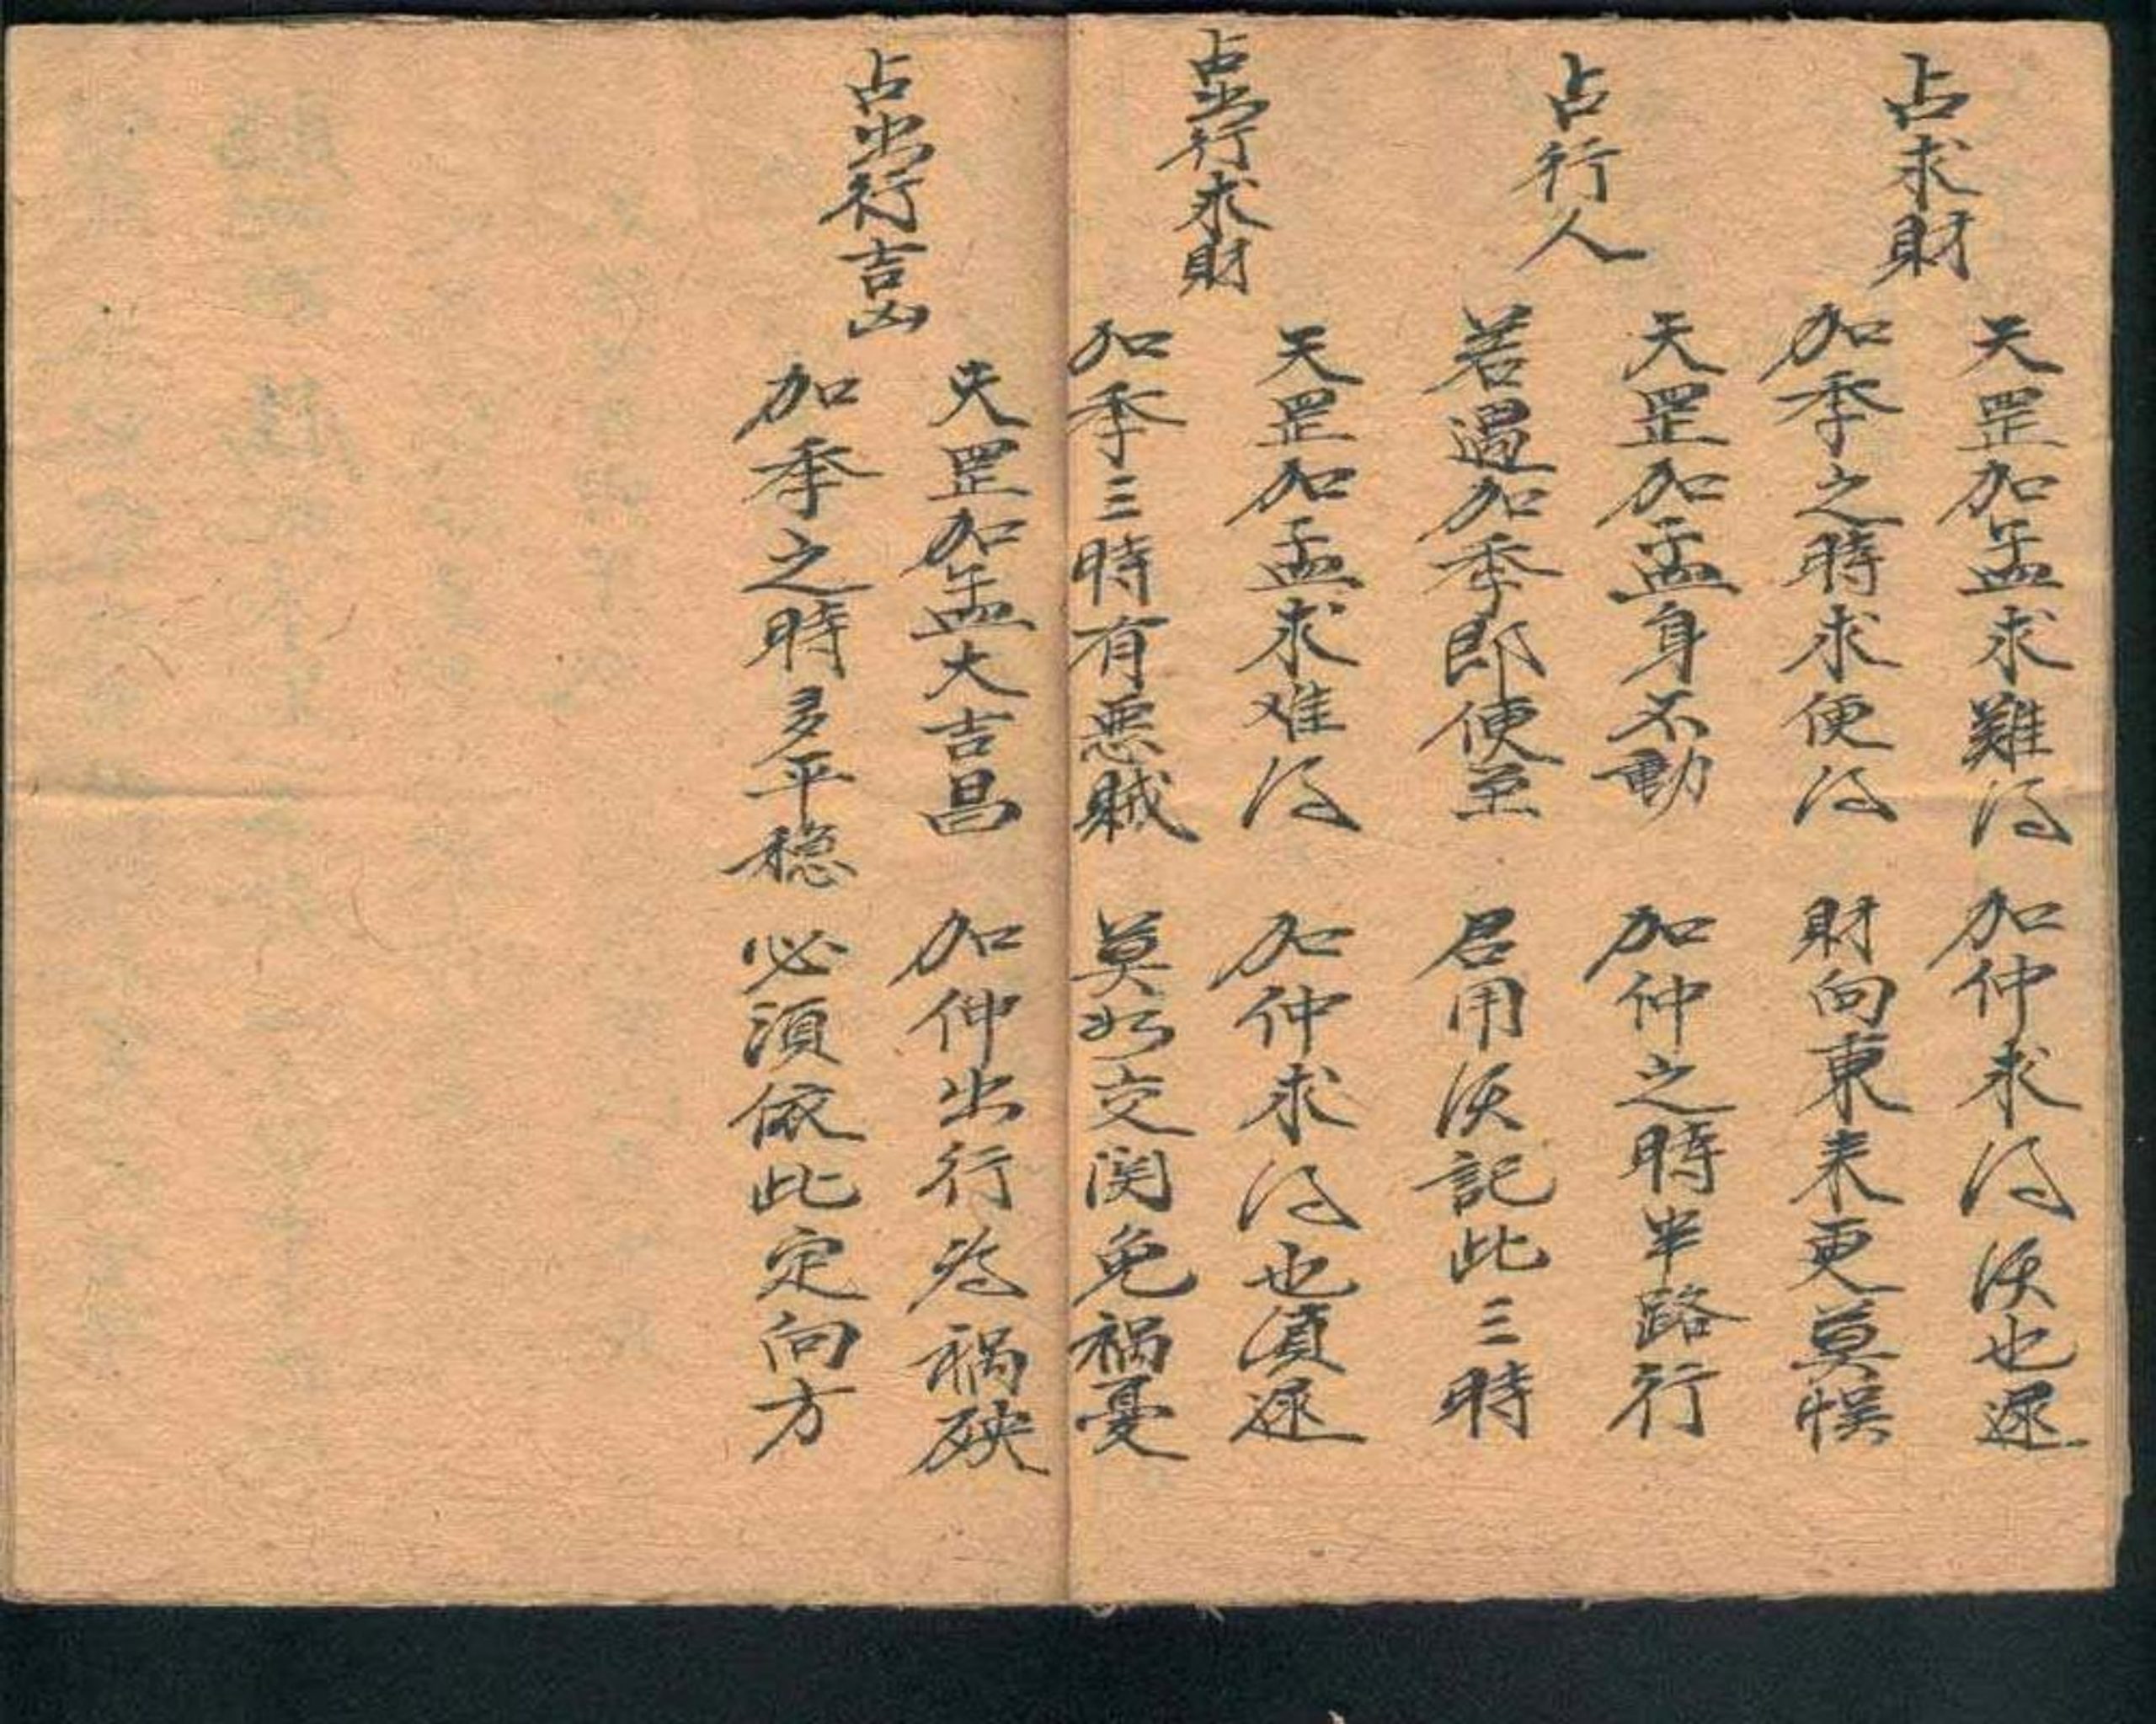 占求財
天罡加孟求難得 加仲求得沃也遲
加季之時求便得 財向東来更莫悮
占行人
天罡加孟身不動 加仲之時半路行
若遇加季即便至 君用沃記此三時
占出行求財
天罡加孟求难得 加仲求得也須遲
加季三時有惡賊 莫於交関免禍憂
占出行吉凶
天罡加孟大吉昌 加仲出行為禍殃
加季之時多平穏 必須依此定向方